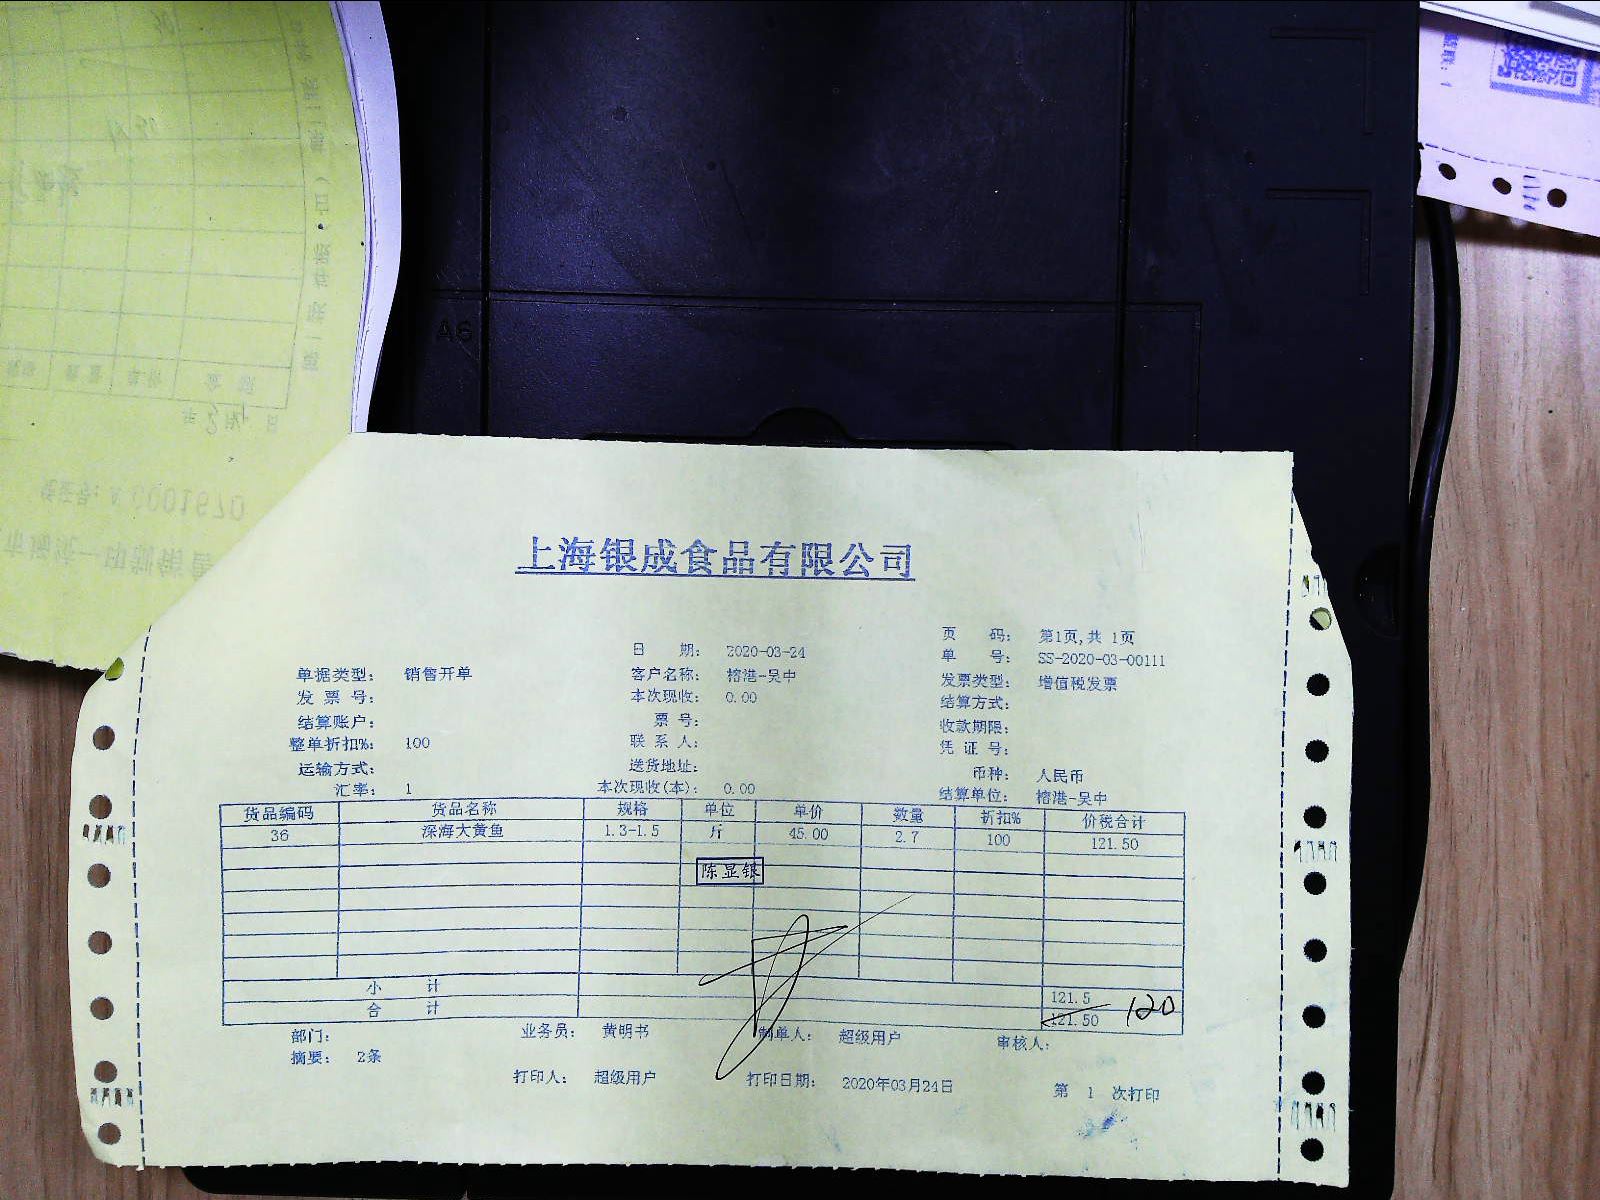 上海银成食品有限公司
页 码: 第1页,共 1页
日 期: 2020-03-24
单 号: SS-2020-03-00111
单据类型: 销售开单
客户名称: 榕港-吴中
发票类型: 增值税发票
发 票 号:
本次现收: 0.00
结算方式:
结算账户:
票 号:
收款期限:
整单折扣%: 100
联 系 人:
凭 证 号:
运输方式:
送货地址:
币种: 人民币
汇率: 1
本次现收(本): 0.00
结算单位: 榕港-吴中
货品编码 货品名称 规格 单位 单价 数量 折扣% 价税合计
36 深海大黄鱼 1.3-1.5 斤 45.00 2.7 100 121.50
陈显银
小 计 121.5
合 计 121.50 120
部门: 业务员: 黄明书 制单人: 超级用户 审核人:
摘要: 2条
打印人: 超级用户 打印日期: 2020年03月24日 第 1 次打印
A6